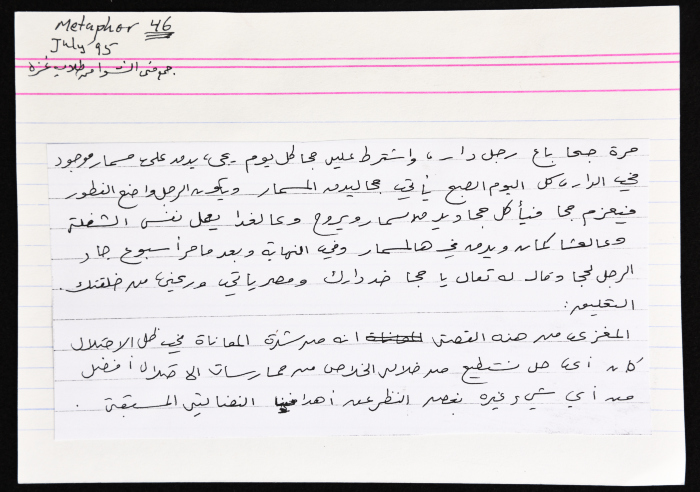 Metaphor 46
July 95
جمع فتى الشوا من طلاب غزة
مرة جحا باع رجل داره، واشترط عليه جحا كل يوم يجي، يدق على مسمار موجود
في الدار، كل اليوم الصبح يأتي جحا ليدق المسمار ويكون الرجل واضع الفطور
فيعزم جحا فيأكل جحا ويدق مسمار ويروح وعالغدا يعمل نفس الشغلة
وعالعشا كمان ويدق في هالمسمار وفي النهاية وبعد ما مر أسبوع جاء
الرجل لجحا وقال له تعال يا جحا خد دارك ومصرياتي ورعيني من خلقتك.
التعليق:
المغزى من هذه القصة انه من شدة المعاناة في ظل الاحتلال
كان أي حل نستطيع من خلاله الخلاص من ممارسات الاحتلال أفضل
من أي شيء غيره بغض النظر عن أهدافنا النضالية المسبقة.